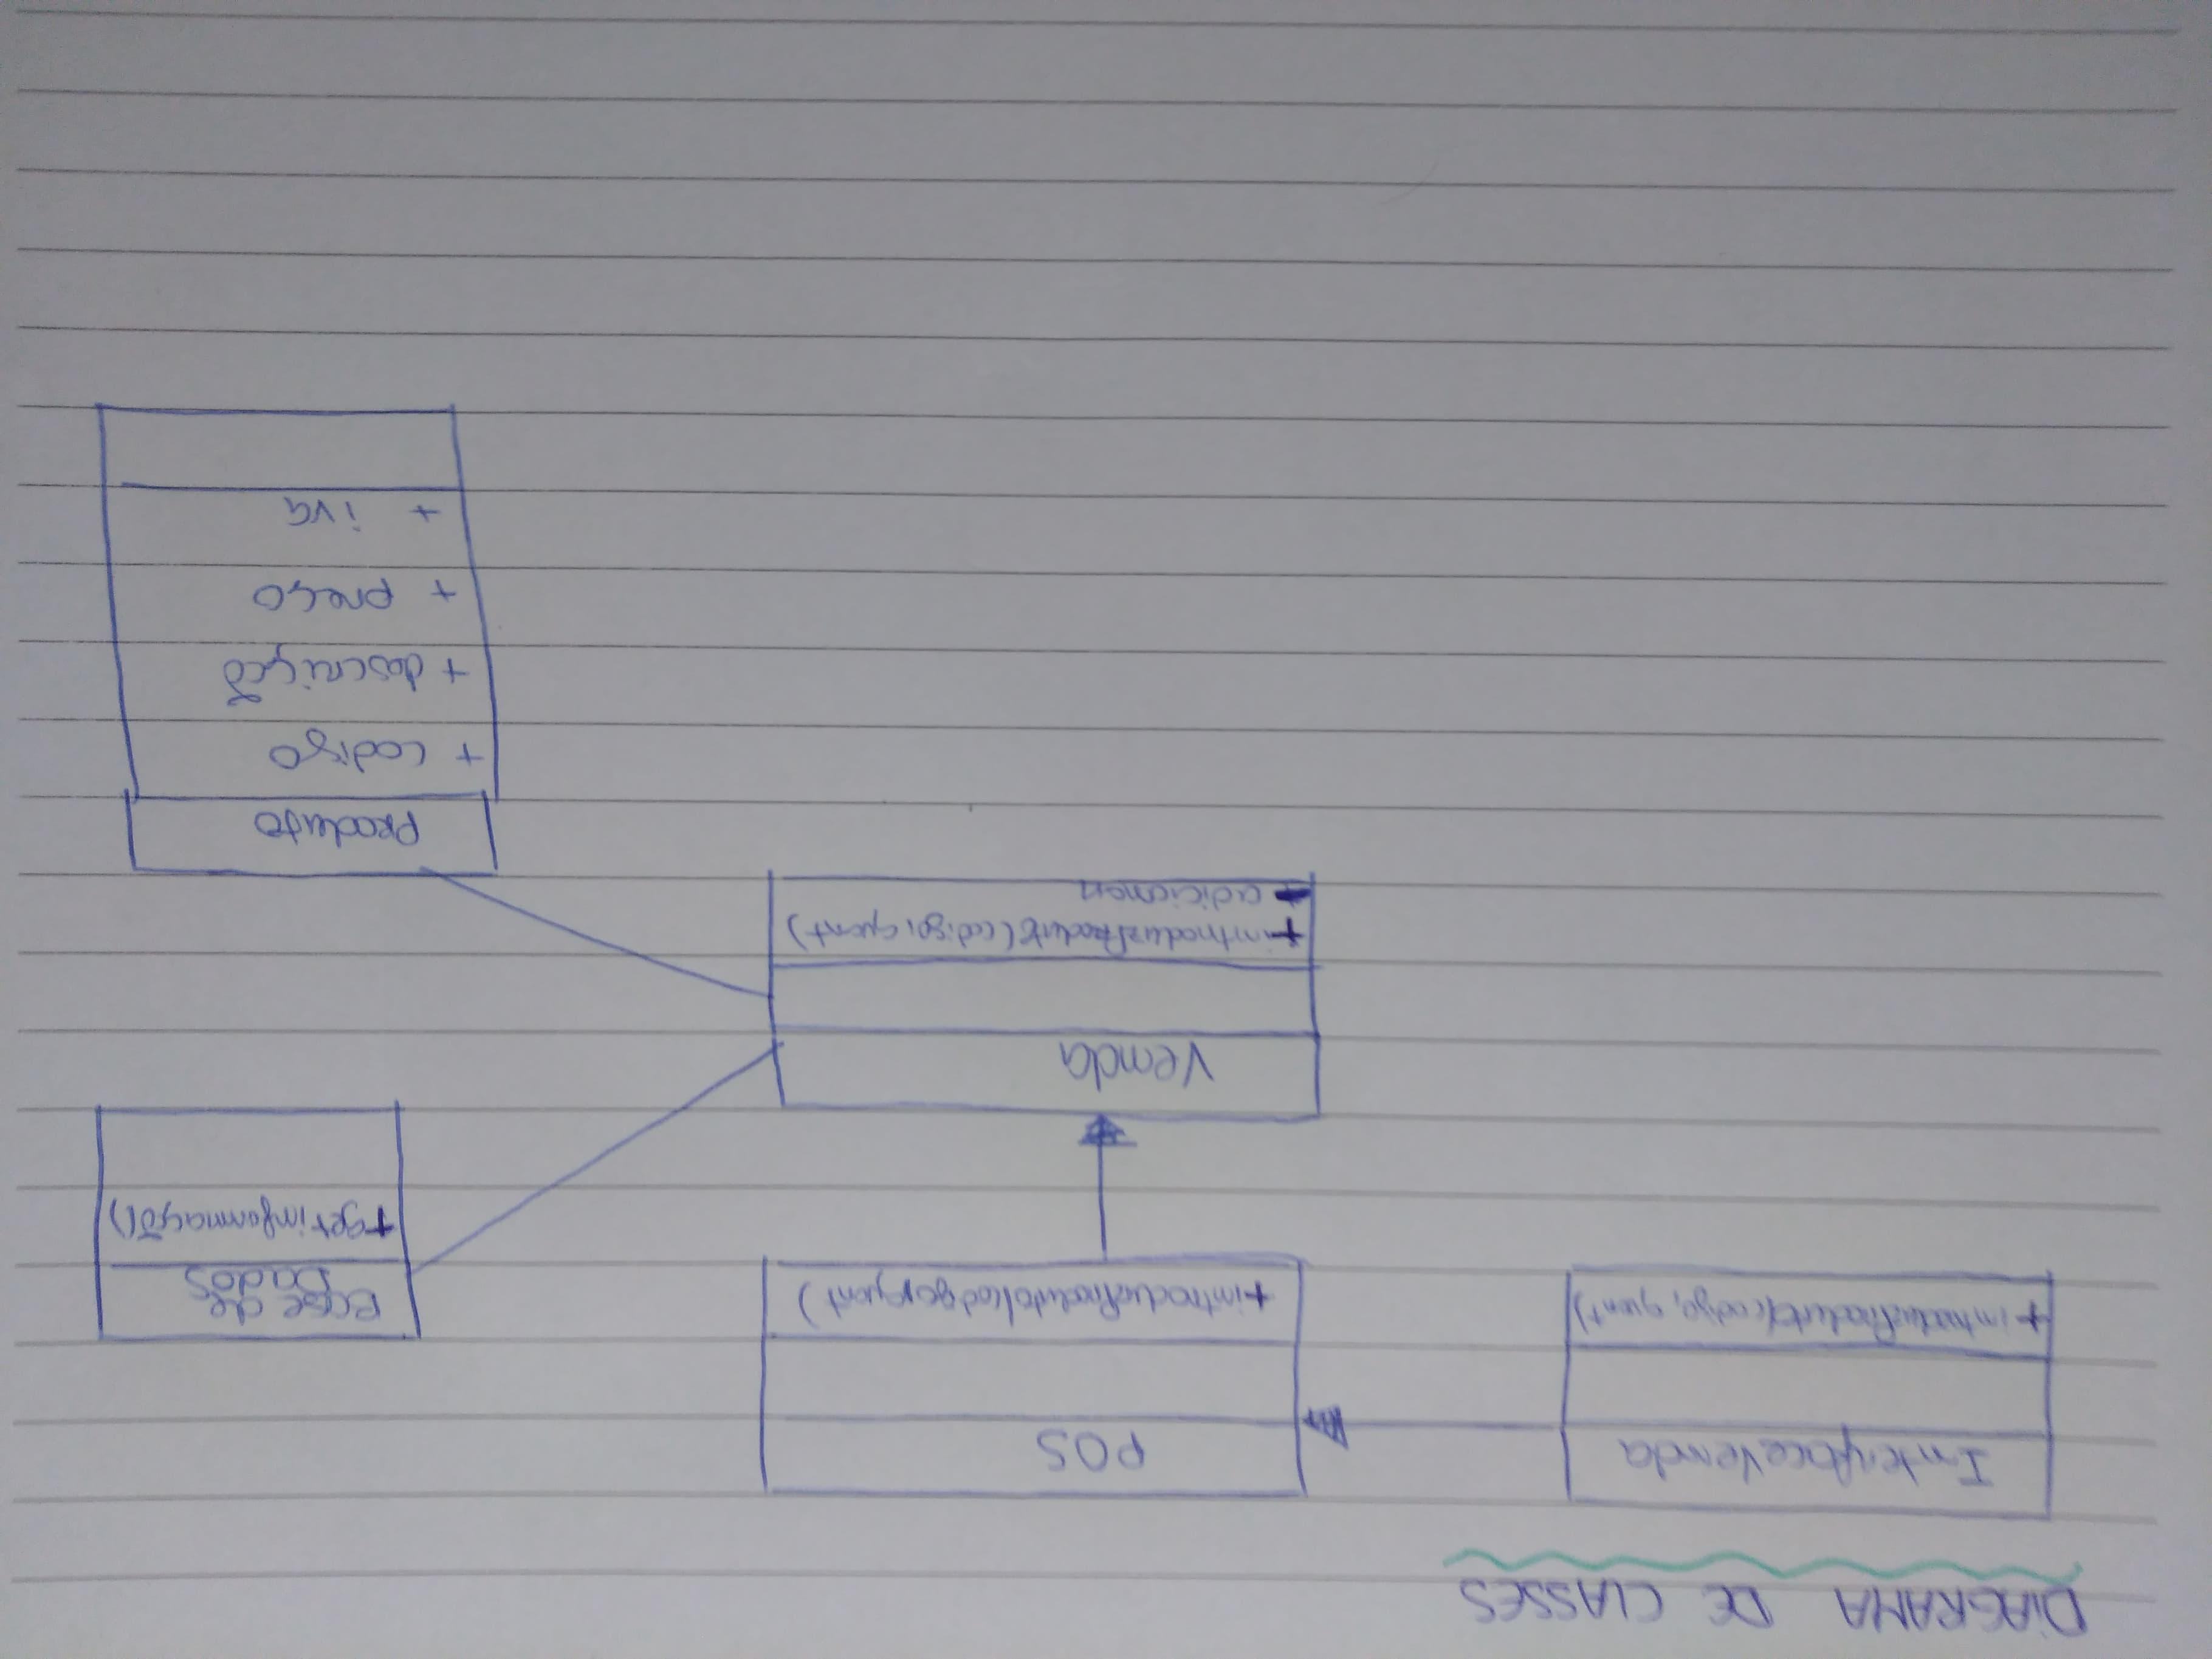 DIAGRAMA DE CLASSES
InterfaceVenda
+ introduzProduto(codigo, quant)
POS
+introduzProduto(codigo, quant)
Base de
Dados
+getinformação()
Venda
+introduzProduto(codigo, quant)
+ adicionar
Produto
+ codigo
+ descrição
+ preço
+ iva